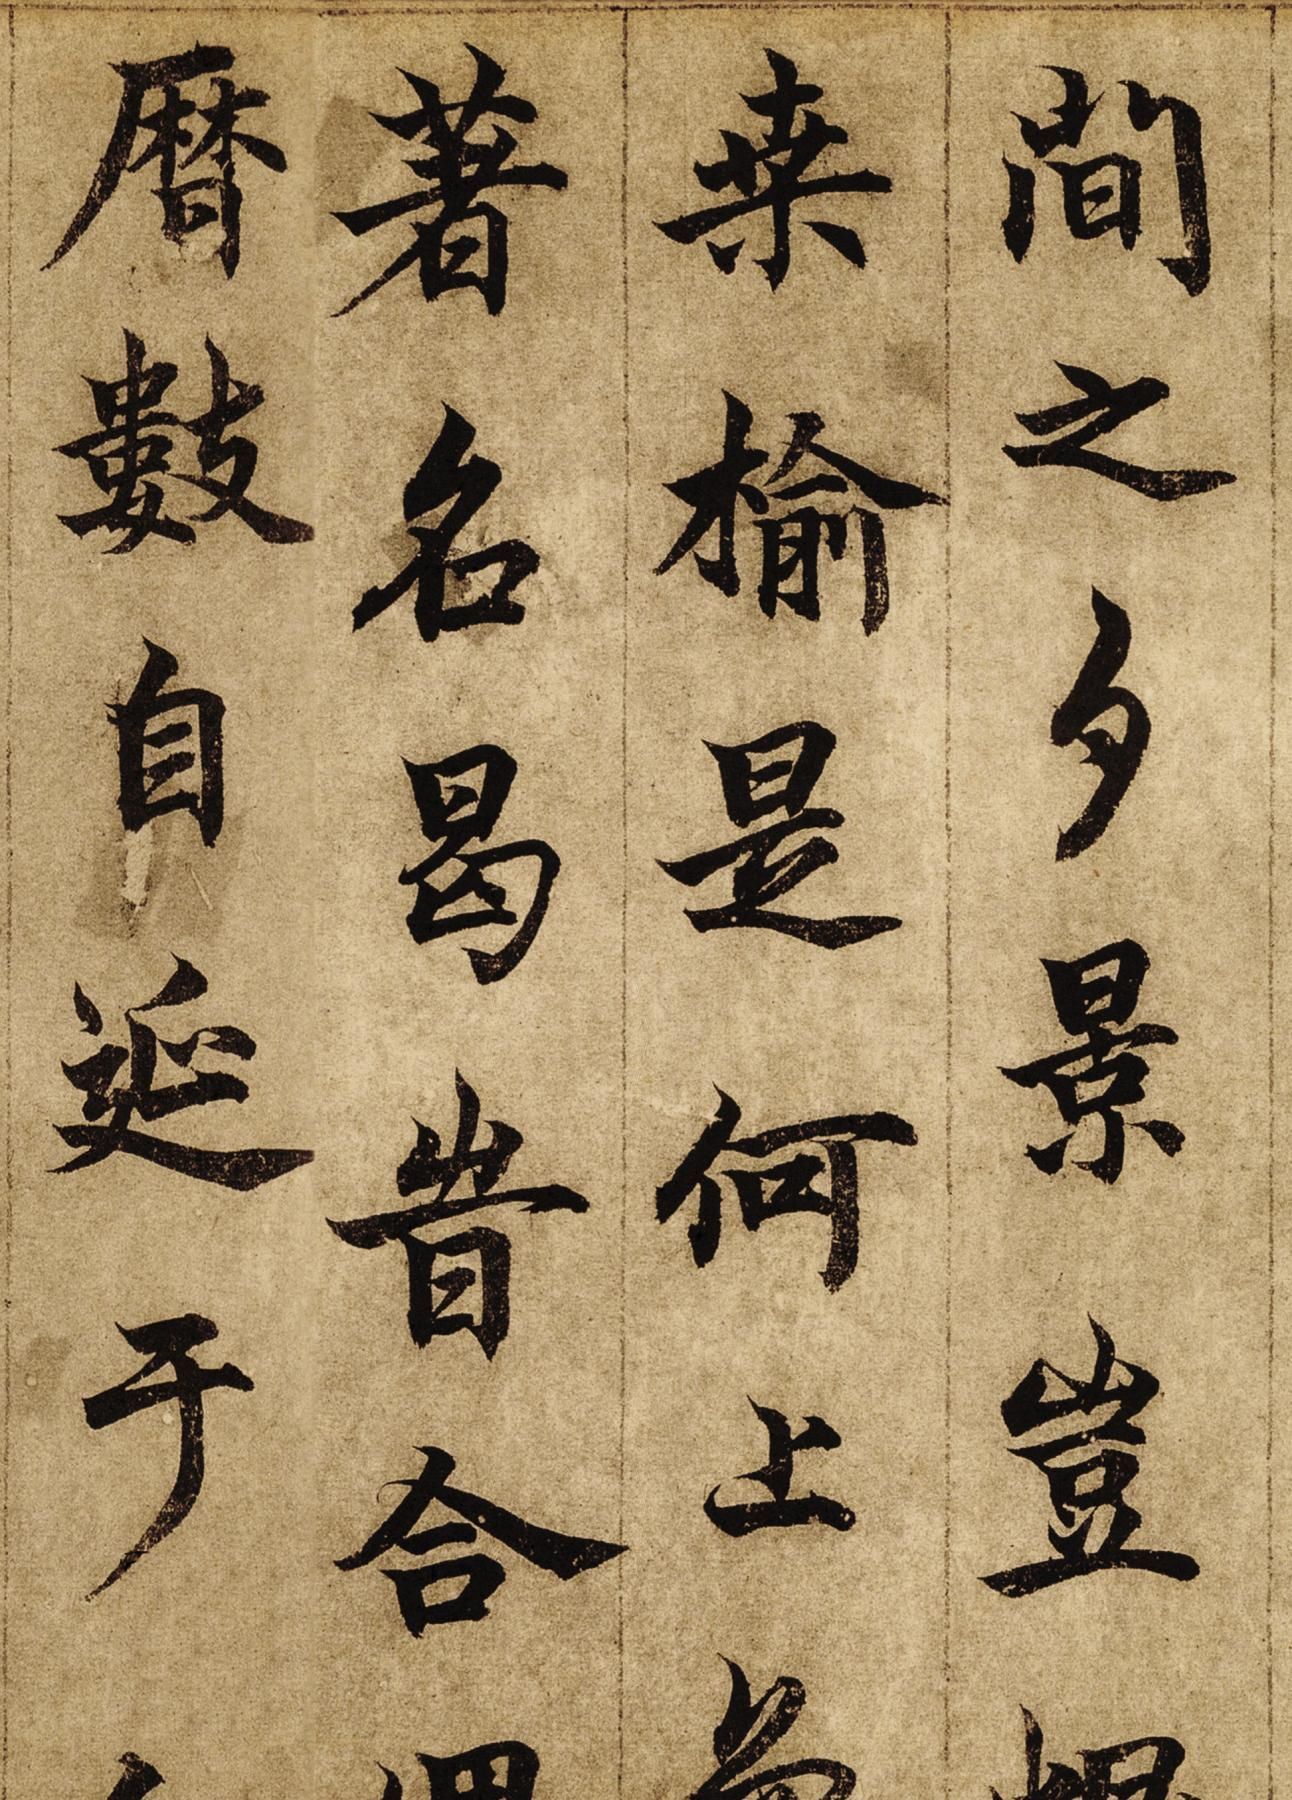 間之夕景豈
桒榆是何上
著名曷昔合
曆數自延于